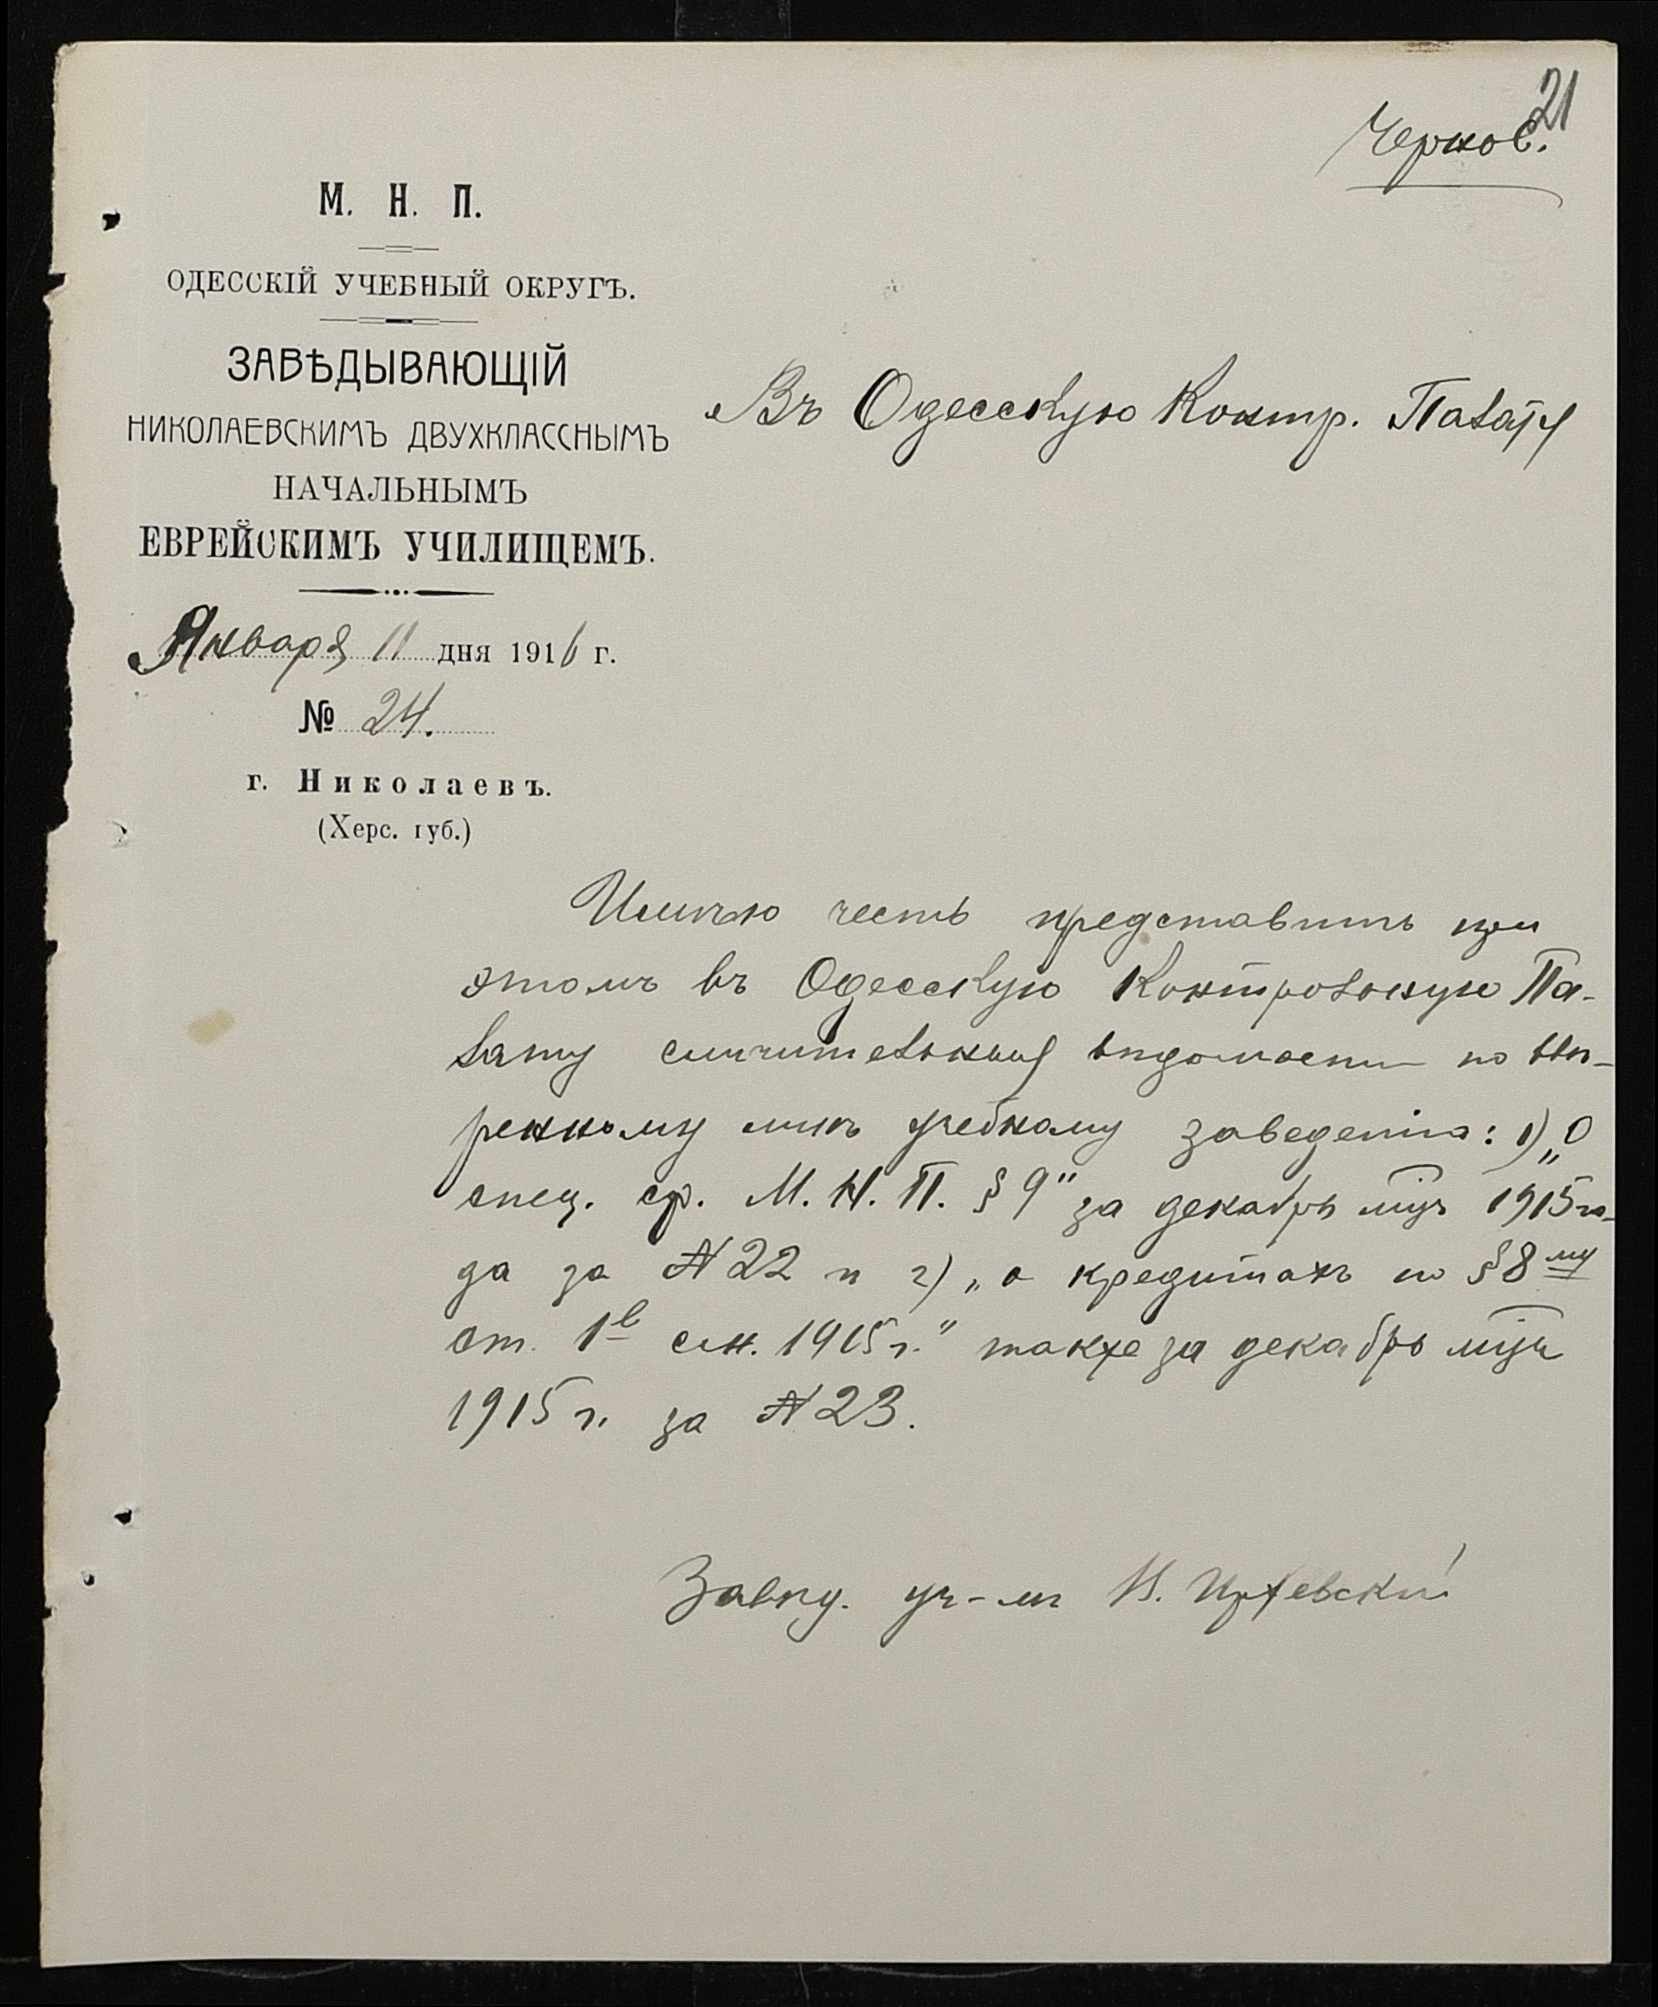 21
Чернов.
М. Н. П.
ОДЕССКІЙ УЧЕБНЫЙ ОКРУГЪ.
ЗАВѢДЫВАЮЩІЙ
НИКОЛАЕВСКИМЪ ДВУХКЛАССНЫМЪ
НАЧАЛЬНЫМЪ
ЕВРЕЙСКИМЪ УЧИЛИЩЕМЪ.
Января 11 дня 1916 г.
№ 24.
г. Николаевъ.
(Херс. губ.)
Въ Одесскую Контр. Палату
Имѣю честь представить при
этомъ въ Одесскую Контрольную Па-
лату сличительныя вѣдомости по ввѣ-
ренному мнѣ учебному заведенію: 1) „О
спец. ср. М. Н. П. § 9" за декабрь мцъ 1915 го-
да за № 22 и 2) „о кредитахъ по § 8му
ст. 1в см. 1915 г." также за декабрь мцъ
1915 г. за № 23.
Завѣд. уч-мъ